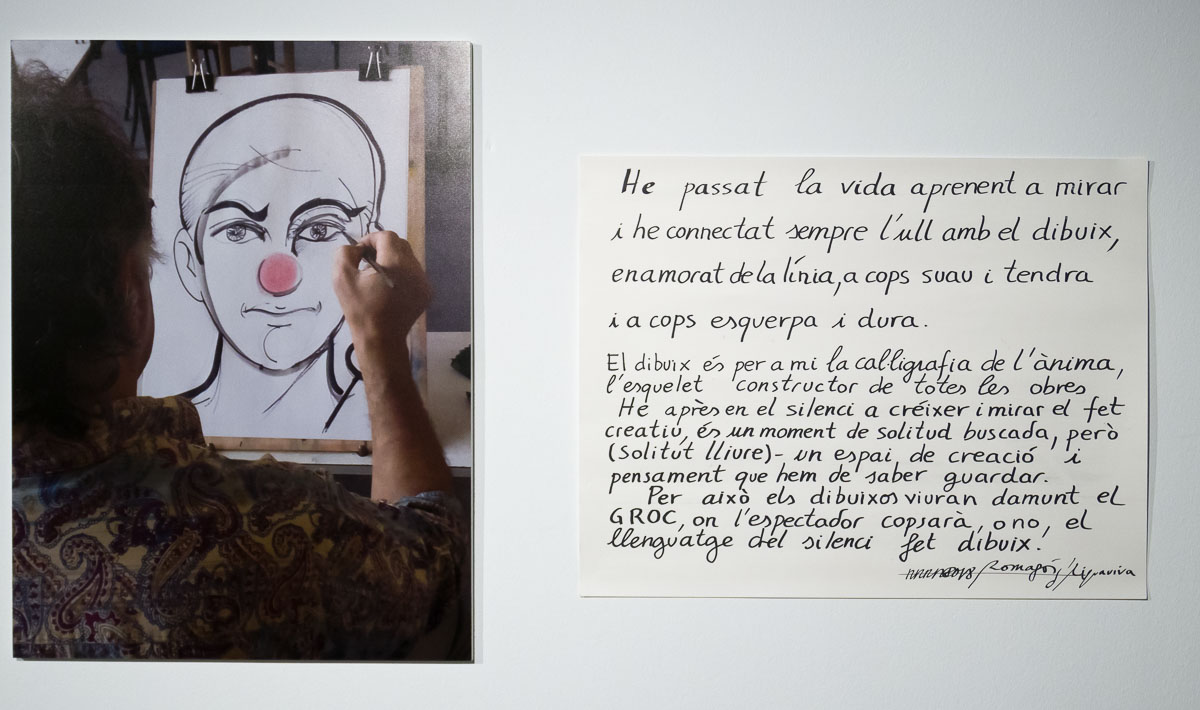 He passat la vida aprenent a mirar
i he connectat sempre l'ull amb el dibuix,
enamorat de la línia, a cops suau i tendra
i a cops esquerpa i dura.
El dibuix és per a mi la cal·ligrafia de l'ànima,
l'esquelet constructor de totes les obres
He après en el silenci a créixer i mirar el fet
creatiu, és un moment de solitud buscada, però
(Solitút lliure) - un espai de creació i
pensament que hem de saber guardar.
Per això els dibuixos viuran damunt el
GROC, on l'espectador copsarà, o no, el
llenguatge del silenci fet dibuix.